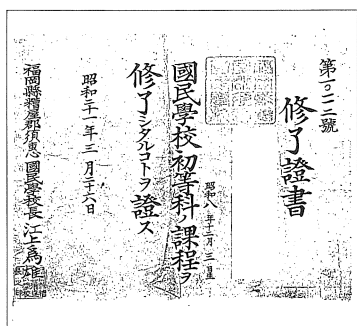 第一〇二二號
修了證書
昭和八年十二月三日生
國民學校初等科ノ課程ヲ
修了シタルコトヲ證ス
昭和二十一年三月二十六日
福岡縣糟屋郡須惠國民學校長 江上爲雄